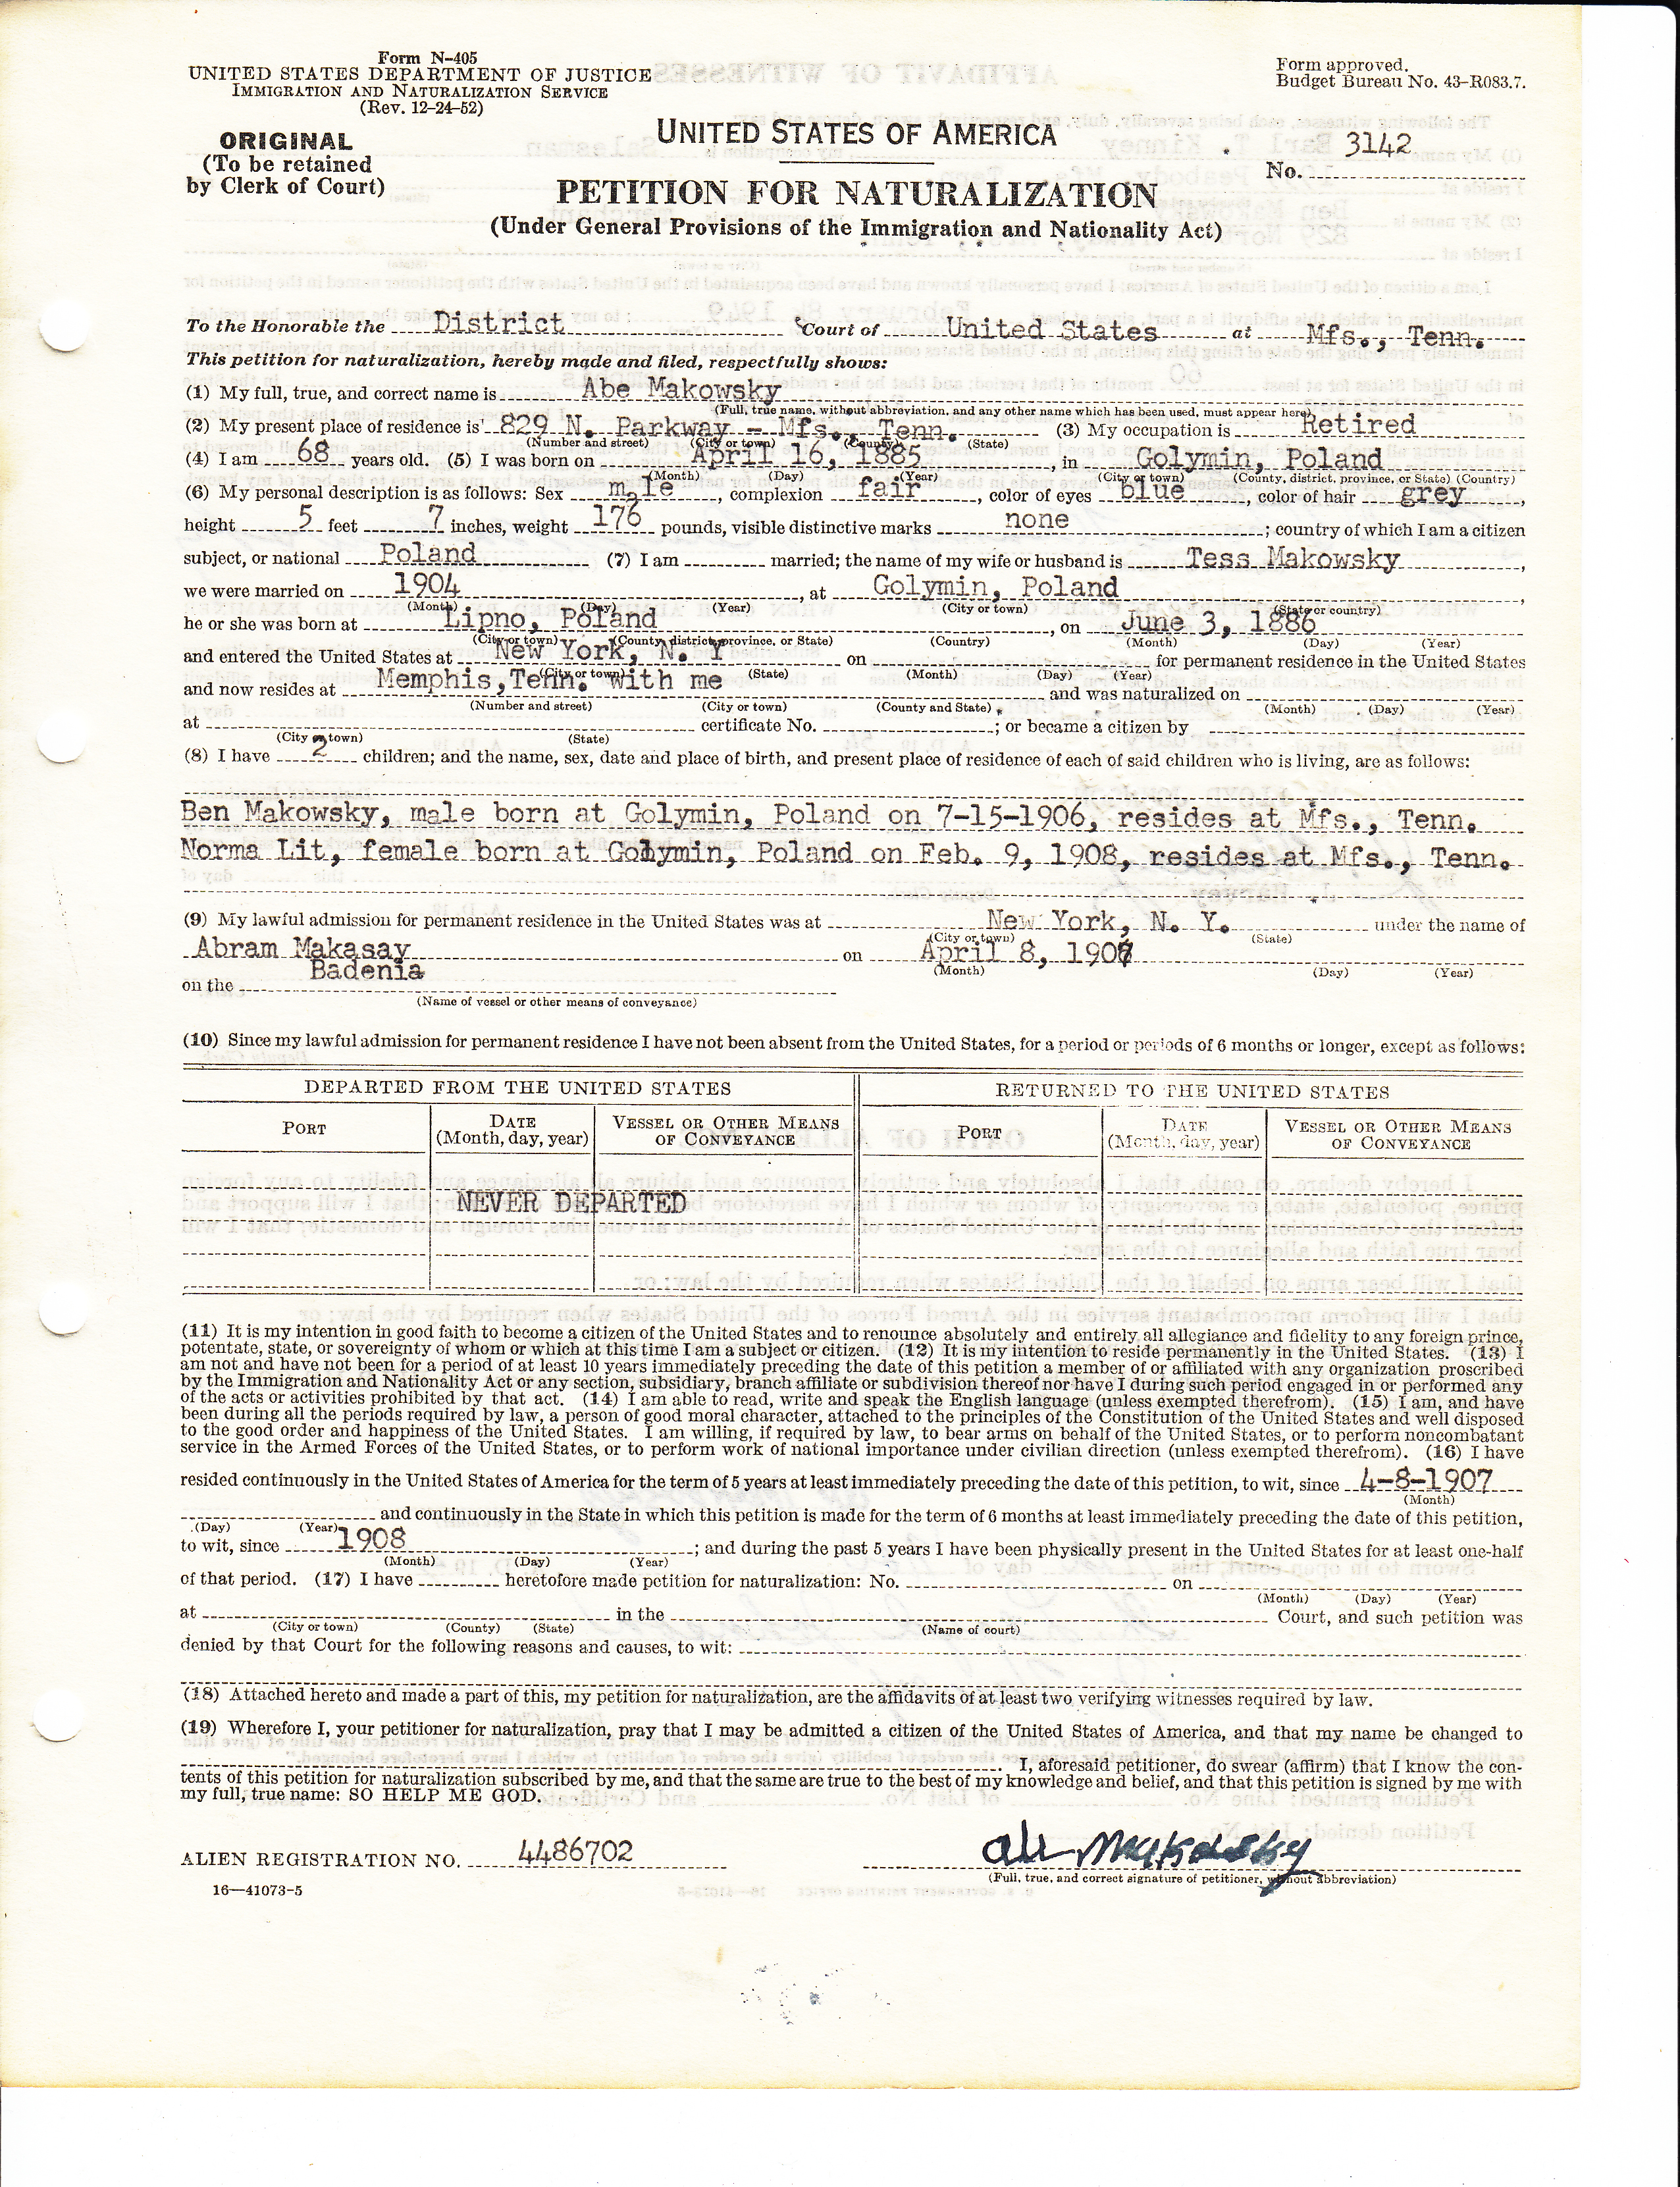 Form N-405
UNITED STATES DEPARTMENT OF JUSTICE
IMMIGRATION AND NATURALIZATION SERVICE
(Rev. 12-24-52)
Form approved.
Budget Bureau No. 43-R083.7.
ORIGINAL
(To be retained
by Clerk of Court)
UNITED STATES OF AMERICA
No. 3142
PETITION FOR NATURALIZATION
(Under General Provisions of the Immigration and Nationality Act)
To the Honorable the District Court of United States at Mfs., Tenn.
This petition for naturalization, hereby made and filed, respectfully shows:
(1) My full, true, and correct name is Abe Makowsky
(Full, true name, without abbreviation, and any other name which has been used, must appear here)
(2) My present place of residence is 829 N. Parkway - Mfs., Tenn. (3) My occupation is Retired
(Number and street) (City or town) (County) (State)
(4) I am 68 years old. (5) I was born on April 16, 1885, in Golymin, Poland
(Month) (Day) (Year) (City or town) (County, district, province, or State) (Country)
(6) My personal description is as follows: Sex male, complexion fair, color of eyes blue, color of hair grey,
height 5 feet 7 inches, weight 176 pounds, visible distinctive marks none; country of which I am a citizen
subject, or national Poland (7) I am married; the name of my wife or husband is Tess Makowsky,
we were married on 1904, at Golymin, Poland,
(Month) (Day) (Year) (City or town) (State or country)
he or she was born at Lipno, Poland, on June 3, 1886
(City or town) (County district, province, or State) (Country) (Month) (Day) (Year)
and entered the United States at New York, N. Y on for permanent residence in the United States
(City or town) (State) (Month) (Day) (Year)
and now resides at Memphis, Tenn. with me and was naturalized on
(Number and street) (City or town) (County and State) (Month) (Day) (Year)
at certificate No. ; or became a citizen by
(City or town) (State)
(8) I have 2 children; and the name, sex, date and place of birth, and present place of residence of each of said children who is living, are as follows:
Ben Makowsky, male born at Golymin, Poland on 7-15-1906, resides at Mfs., Tenn.
Norma Lit, female born at Golymin, Poland on Feb. 9, 1908, resides at Mfs., Tenn.
(9) My lawful admission for permanent residence in the United States was at New York, N. Y. under the name of
(City or town) (State)
Abram Makasay on April 8, 1907
(Month) (Day) (Year)
on the Badenia
(Name of vessel or other means of conveyance)
(10) Since my lawful admission for permanent residence I have not been absent from the United States, for a period or periods of 6 months or longer, except as follows:
DEPARTED FROM THE UNITED STATES RETURNED TO THE UNITED STATES
PORT DATE (Month, day, year) VESSEL OR OTHER MEANS OF CONVEYANCE PORT DATE (Month, day, year) VESSEL OR OTHER MEANS OF CONVEYANCE
NEVER DEPARTED
(11) It is my intention in good faith to become a citizen of the United States and to renounce absolutely and entirely all allegiance and fidelity to any foreign prince,
potentate, state, or sovereignty of whom or which at this time I am a subject or citizen. (12) It is my intention to reside permanently in the United States. (13) I
am not and have not been for a period of at least 10 years immediately preceding the date of this petition a member of or affiliated with any organization proscribed
by the Immigration and Nationality Act or any section, subsidiary, branch affiliate or subdivision thereof nor have I during such period engaged in or performed any
of the acts or activities prohibited by that act. (14) I am able to read, write and speak the English language (unless exempted therefrom). (15) I am, and have
been during all the periods required by law, a person of good moral character, attached to the principles of the Constitution of the United States and well disposed
to the good order and happiness of the United States. I am willing, if required by law, to bear arms on behalf of the United States, or to perform noncombatant
service in the Armed Forces of the United States, or to perform work of national importance under civilian direction (unless exempted therefrom). (16) I have
resided continuously in the United States of America for the term of 5 years at least immediately preceding the date of this petition, to wit, since 4-8-1907
(Month)
and continuously in the State in which this petition is made for the term of 6 months at least immediately preceding the date of this petition,
(Day) (Year)
to wit, since 1908; and during the past 5 years I have been physically present in the United States for at least one-half
(Month) (Day) (Year)
of that period. (17) I have heretofore made petition for naturalization: No. on
(Month) (Day) (Year)
at in the Court, and such petition was
(City or town) (County) (State) (Name of court)
denied by that Court for the following reasons and causes, to wit:
(18) Attached hereto and made a part of this, my petition for naturalization, are the affidavits of at least two verifying witnesses required by law.
(19) Wherefore I, your petitioner for naturalization, pray that I may be admitted a citizen of the United States of America, and that my name be changed to
I, aforesaid petitioner, do swear (affirm) that I know the con-
tents of this petition for naturalization subscribed by me, and that the same are true to the best of my knowledge and belief, and that this petition is signed by me with
my full, true name: SO HELP ME GOD.
ALIEN REGISTRATION NO. 4486702
Abe Makowsky
(Full, true, and correct signature of petitioner, without abbreviation)
16—41073-5